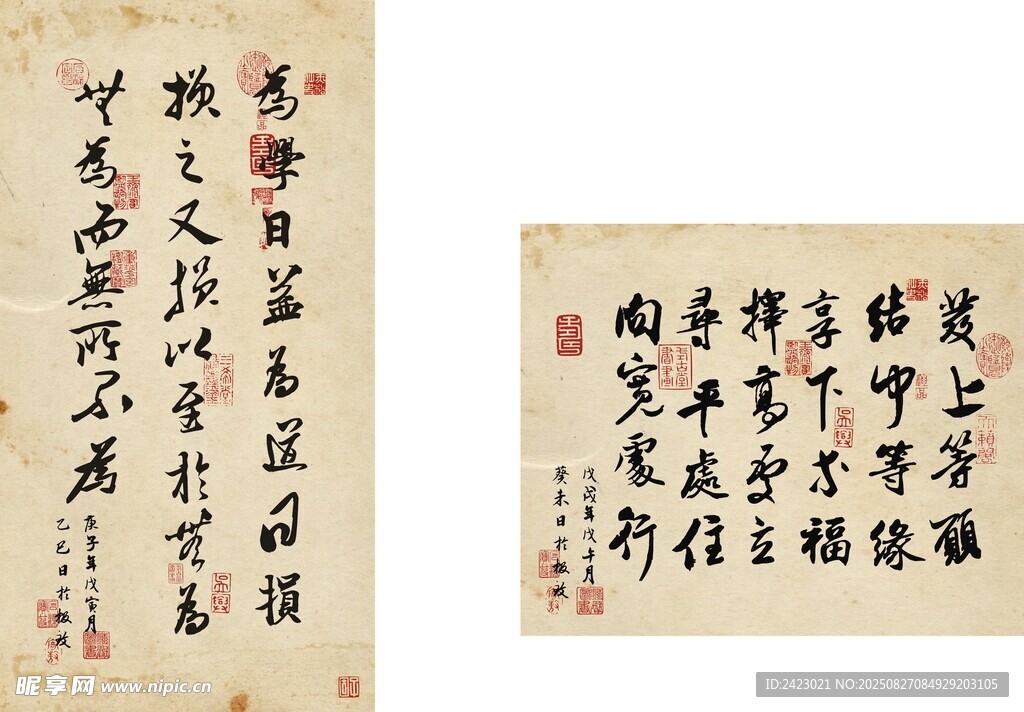 為學日益為道日損
損之又損以至於無為
無為而無所不為
庚子年戊寅月
乙巳日於
發上等願
結中等緣
享下等福
擇高處立
尋平處住
向寬處行
戊戌年戊午月
癸未日於
昵享网 www.nipic.cn
ID:2423021 NO:20250827084929203105